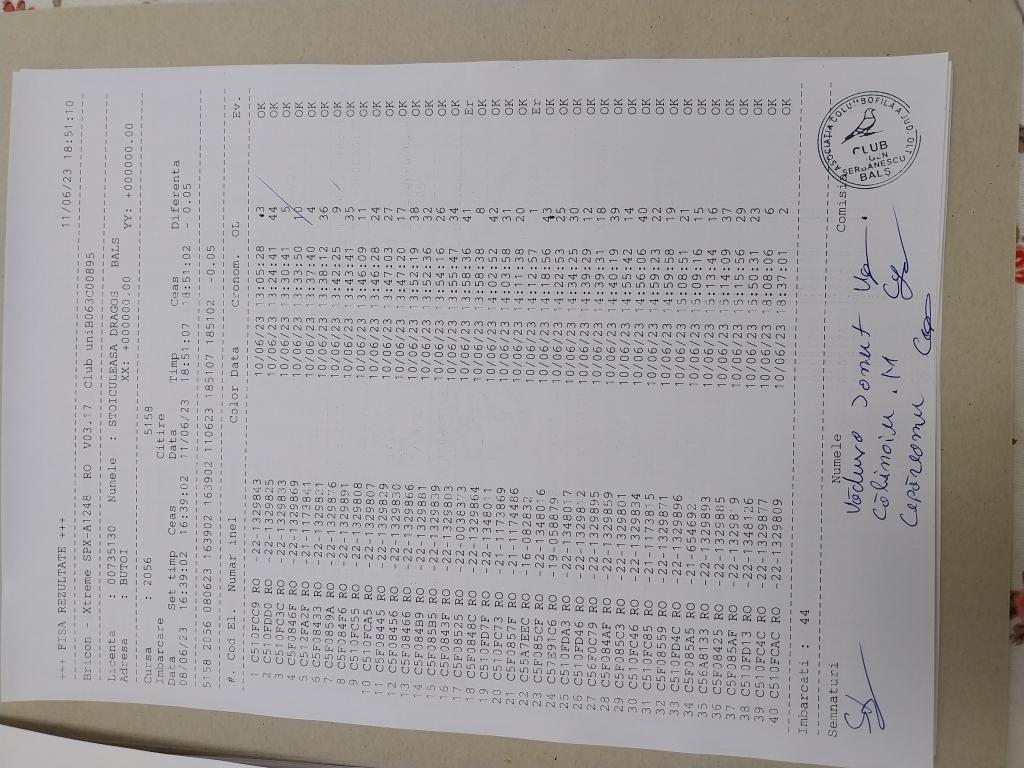 +++ FISA REZULTATE +++ 11/06/23 18:51:10
Bricon - Xtreme SPX-A1248 RO V03.17 Club uniB063C00895
Licenta : 00735130 Numele : STOICULEASA DRAGOS BALS
Adresa : BUTOI XX: +000000.00 YY: +000000.00
Cursa : 2056 5158
Imbarcare Citire
Data Set timp Ceas Data Timp Ceas Diferenta
08/06/23 16:39:02 16:39:02 11/06/23 18:51:07 18:51:02 - 0.05
5158 2056 080623 163902 163902 110623 185107 185102 -0:05
#. Cod El. Numar inel Color Data Cronom. OL Ev.
1 C510FCC9 RO -22-1329843 10/06/23 13:05:28 43 OK
2 C510FDD0 RO -22-1329825 10/06/23 13:24:41 44 OK
3 C510FC3C RO -22-1329833 10/06/23 13:30:41 5 OK
4 C5F0846F RO -22-1329869 10/06/23 13:33:50 10 OK
5 C512FA2F RO -21-1173841 10/06/23 13:37:40 4 OK
6 C5F08433 RO -22-1329821 10/06/23 13:38:12 36 OK
7 C5F0859A RO -22-1329876 10/06/23 13:42:25 9 OK
8 C5F084F6 RO -22-1329891 10/06/23 13:43:41 35 OK
9 C510FC55 RO -22-1329808 10/06/23 13:46:09 11 OK
10 C510FCA5 RO -22-1329807 10/06/23 13:46:28 24 OK
11 C5F08445 RO -22-1329829 10/06/23 13:47:03 27 OK
12 C5F08456 RO -22-1329830 10/06/23 13:47:20 17 OK
13 C5F08466 RO -22-1329866 10/06/23 13:52:19 38 OK
14 C5F084B9 RO -22-1329881 10/06/23 13:52:36 32 OK
15 C5F085B5 RO -22-1329839 10/06/23 13:54:16 26 OK
16 C5F0843F RO -22-1329823 10/06/23 13:55:47 34 OK
17 C5F08525 RO -22-0038373 10/06/23 13:58:38 41 Er
18 C5F0848C RO -22-1329864 10/06/23 13:58:38 8 OK
19 C510FD7F RO -22-1348011 10/06/23 14:02:52 42 OK
20 C510FC73 RO -21-1173869 10/06/23 14:03:58 31 OK
21 C5F0857F RO -21-1174486 10/06/23 14:11:38 20 OK
22 C55A7EEC RO -16-082832 10/06/23 14:12:57 Er
23 C5F085CF RO -22-1348016 10/06/23 14:14:56 43 OK
24 C57591C6 RO -19-058679 10/06/23 14:22:53 25 OK
25 C510FDA3 RO -22-1348017 10/06/23 14:34:25 30 OK
26 C510FD46 RO -22-1329859 10/06/23 14:39:29 12 OK
27 C56F0C79 RO -22-1329895 10/06/23 14:39:31 18 OK
28 C5F084AF RO -22-1329859 10/06/23 14:40:19 39 OK
29 C5F085C3 RO -22-1329801 10/06/23 14:55:42 14 OK
30 C510FC46 RO -22-1329834 10/06/23 14:56:06 40 OK
31 C510FC85 RO -22-1329871 10/06/23 14:59:23 22 OK
32 C5F08559 RO -21-1173815 10/06/23 14:59:58 19 OK
33 C510FD4C RO -22-1329896 10/06/23 15:08:51 21 OK
34 C5F085A5 RO -21-654692 10/06/23 15:09:16 15 OK
35 C56A8133 RO -22-1329893 10/06/23 15:13:44 16 OK
36 C5F08425 RO -22-1329885 10/06/23 15:14:09 37 OK
37 C5F085AF RO -22-1329819 10/06/23 15:15:56 29 OK
38 C510FD13 RO -22-1348126 10/06/23 15:50:31 23 OK
39 C510FC4C RO -22-1329877 10/06/23 18:08:06 6 OK
40 C510FCAC RO -22-1329809 10/06/23 18:37:01 2 OK
Imbarcati : 44
Semnaturi Numele Comisia
ASOCIATIA COLUMBOFILA A JUD. OLT
CLUB
GEN
SERBANESCU
BALS